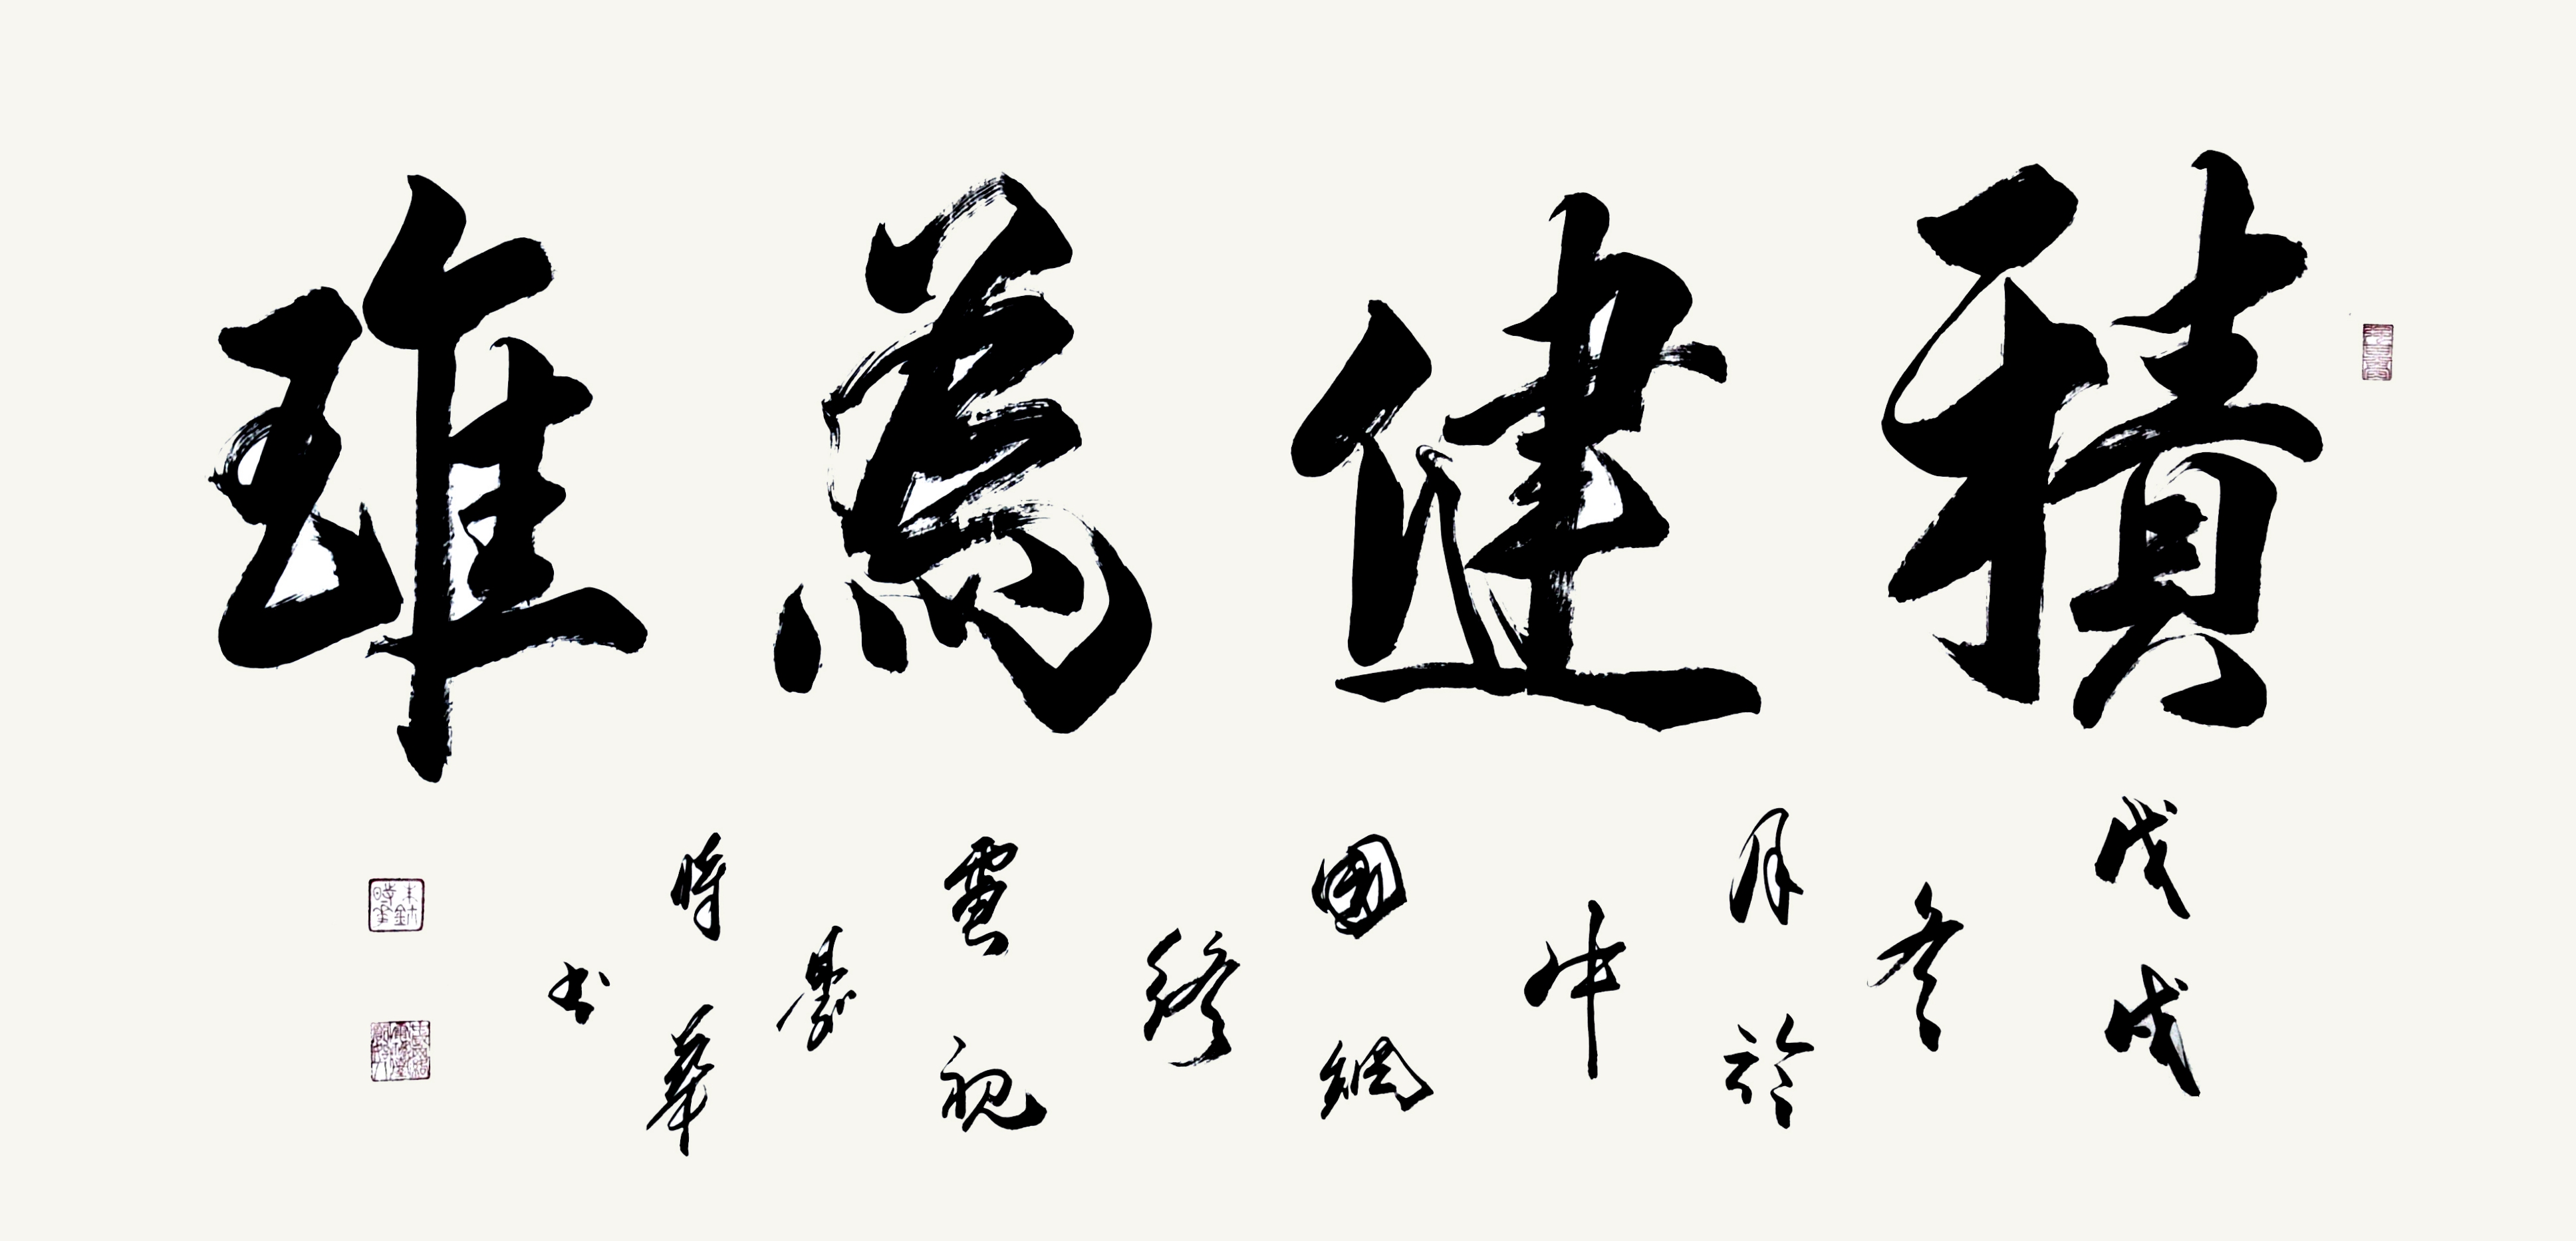 積健為雄
戊戌冬月於中國網絡雲視 時華书